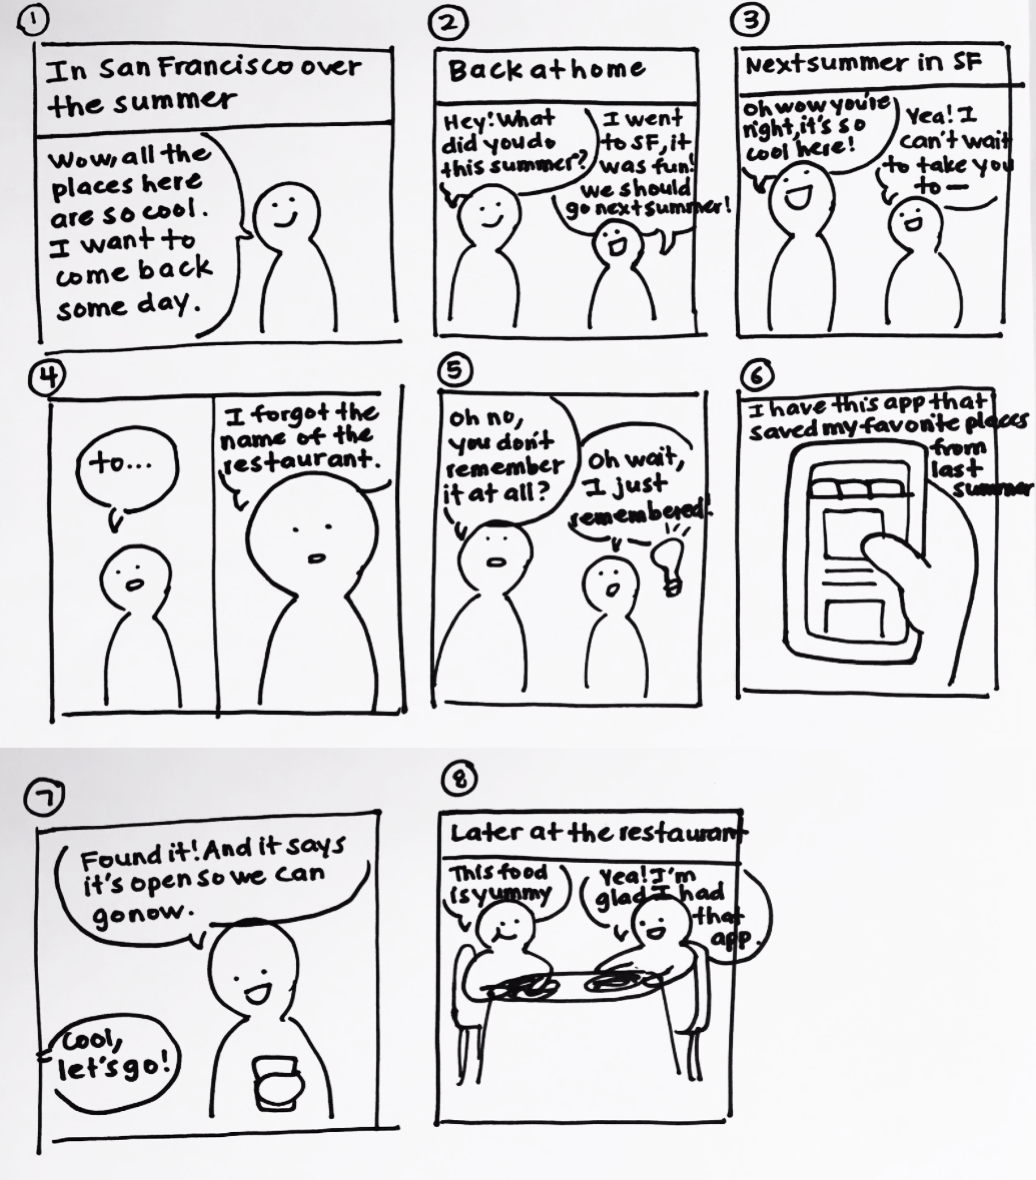 1
In San Francisco over
the summer
Wow, all the
places here
are so cool.
I want to
come back
some day.
2
Back at home
Hey! What
did you do
this summer?
I went
to SF, it
was fun!
we should
go next summer!
3
Next summer in SF
Oh wow you're
right, it's so
cool here!
Yea! I
can't wait
to take you
to —
4
to...
I forgot the
name of the
restaurant.
5
Oh no,
you don't
remember
it at all?
Oh wait,
I just
remembered!
6
I have this app that
saved my favorite places
from
last
summer
7
Found it! And it says
it's open so we can
go now.
Cool,
let's go!
8
Later at the restaurant
This food
is yummy
Yea! I'm
glad I had
that
app.